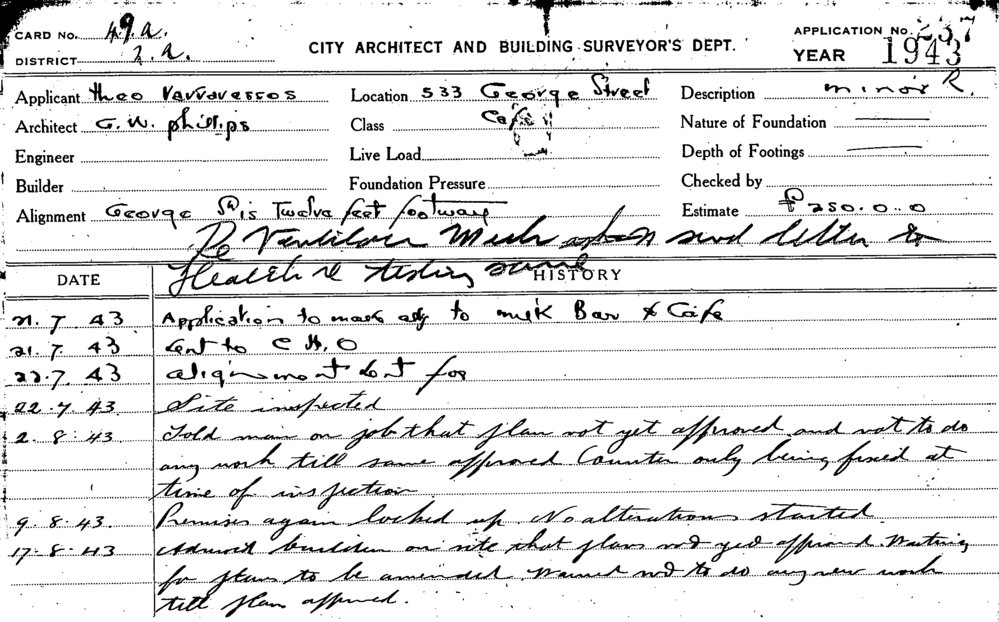 CARD No. 49.a.
DISTRICT 2.a.
CITY ARCHITECT AND BUILDING SURVEYOR'S DEPT.
APPLICATION No. 237
YEAR 1943
Applicant Theo Varvaressos
Location 533 George Street
Description minor R.
Architect G. W. Phillips
Class Cafe
Nature of Foundation
Engineer
Live Load
Depth of Footings
Builder
Foundation Pressure
Checked by
Alignment George St is Twelve feet footway
Estimate £250.0.0
Re Ventilation Mech send letter to
Health re testing same
DATE HISTORY
21.7.43 Application to make to milk Bar & Cafe
21.7.43 Sent to C H O
22.7.43 alignment sent for
22.7.43 Site inspected
2.8.43 Told man on job that plan not yet approved and not to do
any work till same approved Counter only being fixed at
time of inspection
9.8.43. Premises again locked up. No alterations started
17.8.43 Advised builder on site that plans not yet approved. Waiting
for plans to be amended. Warned not to do any new work
till plan approved.